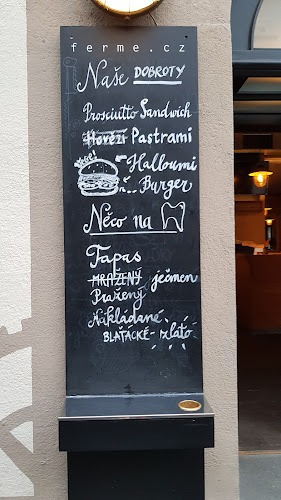 ferme.cz
Naše DOBROTY
Prosciutto Sandwich
Hovězí Pastrami
Halloumi
Burger
Něco na
Tapas
MRAŽENÝ ječmen
Pražený
Nakládané
BLAŤÁCKÉ - zlato